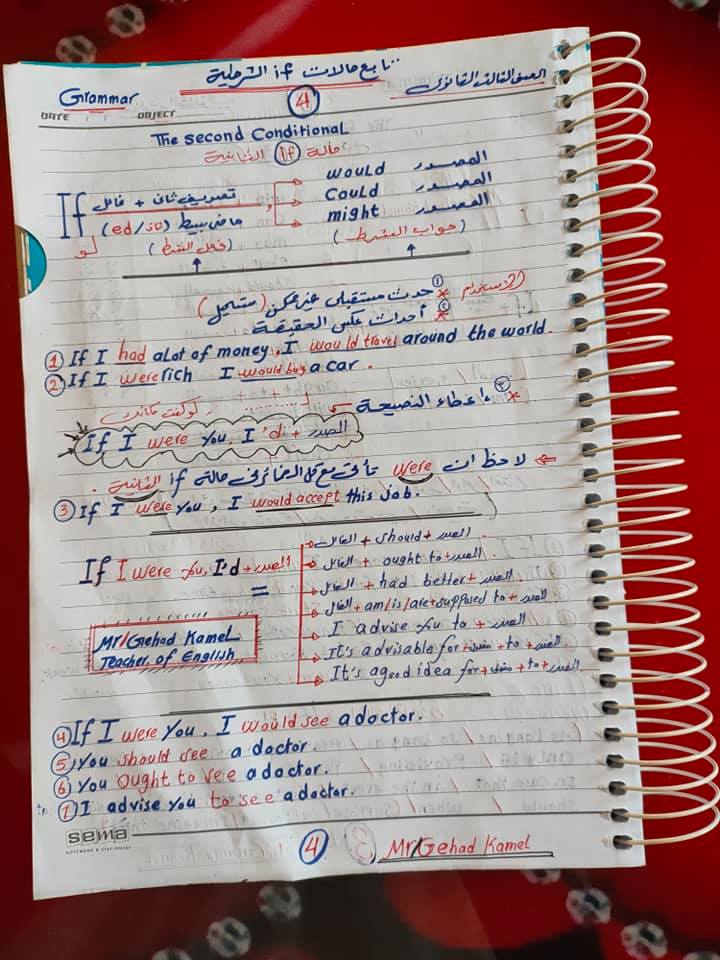 تابع حالات if الشرطية
الصف الثالث الثانوى
Grammar
4
DATE / / OBJECT
The second Conditional
حالة if الثانية
If فاعل + تصريف ثان ,
would المصدر
Could المصدر
might المصدر
(ed/ثان) ماضى بسيط
لو (فعل الشرط) (جواب الشرط)
الأستخدام
① حدث مستقبلى غير ممكن (مستحيل)
② أحداث عكس الحقيقة
① If I had alot of money, I would travel around the world.
② If I were rich I would buy a car.
③ إعطاء النصيحة
لو كنت مكانك
If I were you, I'd + المصدر
لاحظ ان were تأتى مع كل الضمائر فى حالة if الثانية.
③ If I were you, I would accept this job.
If I were you, I'd + المصدر =
الفاعل + should + المصدر.
الفاعل + ought to + المصدر.
الفاعل + had better + المصدر.
الفاعل + am/is/are + supposed to + المصدر
I advise you to + المصدر
It's advisable for + مفعول + to + المصدر
It's agood idea for + مفعول + to + المصدر
Mr/Gehad Kamel
Teacher of English
④ If I were you, I would see a doctor.
⑤ you should see a doctor.
⑥ you ought to see a doctor.
⑦ I advise you to see a doctor.
sema
NOTEBOOK & STATIONERY
4
Mr/Gehad Kamel